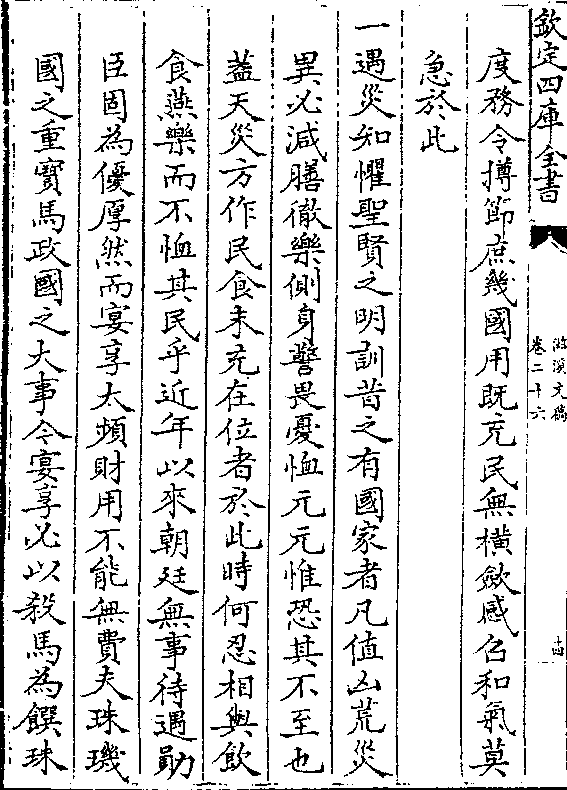 欽定四庫全書
滋溪文稿
卷二十六
十四
度務令撙節庶幾國用既充民無橫斂感召和氣莫
急於此
一遇災知懼聖賢之明訓昔之有國家者凡值凶荒災
異必減膳徹樂側身警畏憂恤元元惟恐其不至也
葢天災方作民食未充在位者於此時何忍相與飲
食燕樂而不恤其民乎近年以來朝廷無事待遇勛
臣固為優厚然而宴享太頻財用不能無費夫珠璣
國之重寳馬政國之大事今宴享必以殺馬為饌珠